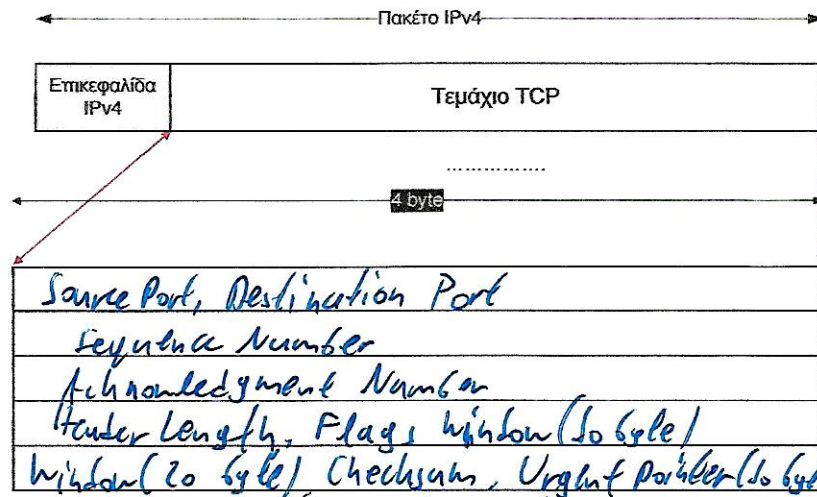 Πακέτο IPv4
Επικεφαλίδα
IPv4
Τεμάχιο TCP
................
4 byte
Source Port, Destination Port
Sequence Number
Acknowledgment Number
Header Length, Flags Window (1o byte)
Window (2o byte) Checksum, Urgent Pointer (1o byte